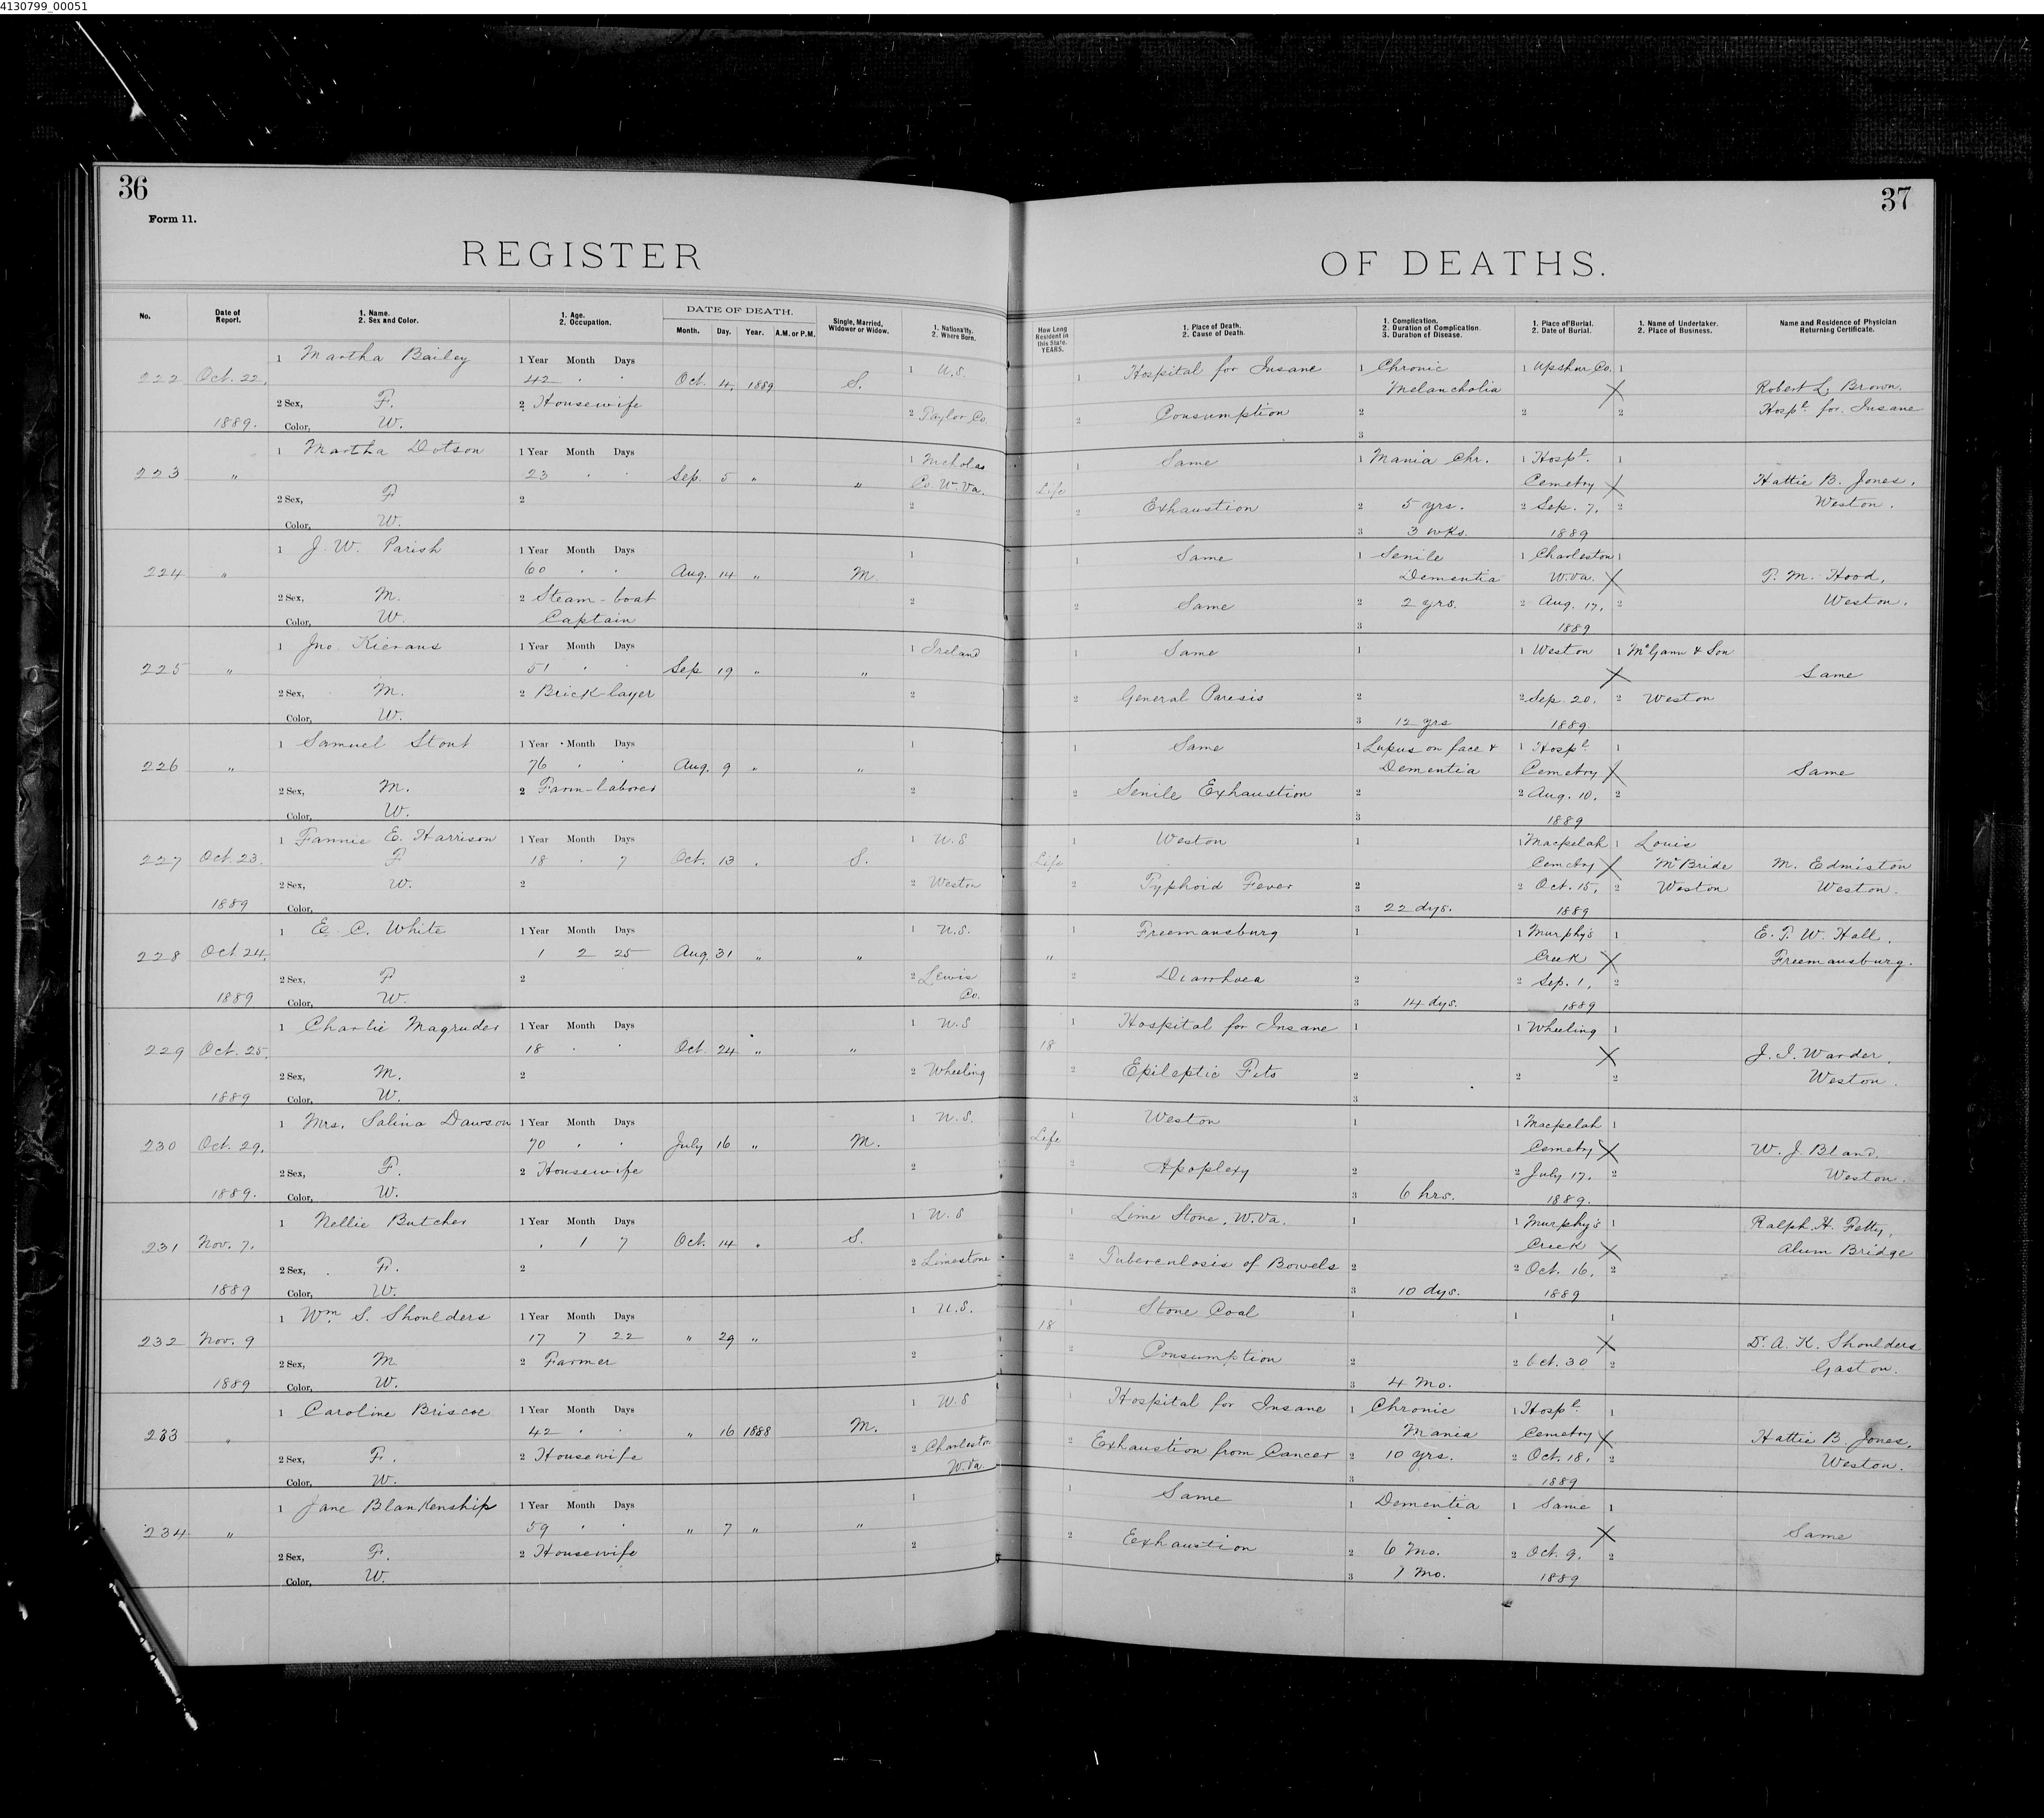 4130799_00051
36
Form 11.
REGISTER
No.
Date of Report.
1. Name.
2. Sex and Color.
1. Age.
2. Occupation.
DATE OF DEATH.
Month. Day. Year. A.M. or P.M.
Single, Married, Widower or Widow.
1. Nationality.
2. Where Born.
37
OF DEATHS.
How Long Resident in this State. YEARS.
1. Place of Death.
2. Cause of Death.
1. Complication.
2. Duration of Complication.
3. Duration of Disease.
1. Place of Burial.
2. Date of Burial.
1. Name of Undertaker.
2. Place of Business.
Name and Residence of Physician Returning Certificate.
1 Martha Bailey 1 Year Month Days 1 U.S. 1 Hospital for Insane 1 Chronic 1 Upshur Co. 1
222 Oct. 22, 42 Oct. 4, 1889 S. Melancholia X Robert L. Brown,
2 Sex, F. 2 Housewife 2 Taylor Co. 2 Consumption 2 2 2 Hospl. for Insane
1889. Color, W. 3
1 Martha Dotson 1 Year Month Days 1 Nicholas 1 Same 1 Mania Chr. 1 Hospl. 1
223 " 23 Sep. 5 " " Co. W. Va. Life Cemetry X Hattie B. Jones,
2 Sex, F 2 2 2 Exhaustion 2 5 yrs. 2 Sep. 7, 2 Weston.
Color, W. 3 3 wks. 1889
1 J. W. Parish 1 Year Month Days 1 1 Same 1 Senile 1 Charleston 1
224 " 60 Aug. 14 " M. Dementia W.Va. X T. M. Hood,
2 Sex, M. 2 Steam-boat 2 2 Same 2 2 yrs. 2 Aug. 17, 2 Weston.
Color, W. Captain 3 1889
1 Jno. Kierans 1 Year Month Days 1 Ireland 1 Same 1 1 Weston 1 McGann & Son
225 " 51 Sep 19 " " X Same
2 Sex, M. 2 Brick layer 2 2 General Paresis 2 2 Sep. 20, 2 Weston
Color, W. 3 12 yrs 1889
1 Samuel Stout 1 Year Month Days 1 1 Same 1 Lupus on face & 1 Hospl. 1
226 " 76 Aug. 9 " " Dementia Cemetry X Same
2 Sex, M. 2 Farm-laborer 2 2 Senile Exhaustion 2 2 Aug. 10, 2
Color, W. 3 1889
1 Fannie E. Harrison 1 Year Month Days 1 U.S 1 Weston 1 1 Macpelah 1 Louis
227 Oct. 23. F 18 7 Oct. 13 S. Life Cemetry X McBride M. Edmiston
2 Sex, W. 2 2 Weston 2 Typhoid Fever 2 2 Oct. 15, 2 Weston Weston.
1889 Color, 3 22 dys. 1889
1 E. C. White 1 Year Month Days 1 U.S. 1 Freemansburg 1 1 Murphy's 1 E. T. W. Hall,
228 Oct 24, 1 2 25 Aug. 31 " " " Creek X Freemansburg.
2 Sex, F 2 2 Lewis 2 Diarrhoea 2 2 Sep. 1, 2
1889 Color, W. Co. 3 14 dys. 1889
1 Charlie Magruder 1 Year Month Days 1 U.S 1 Hospital for Insane 1 1 Wheeling 1
229 Oct. 25, 18 Oct. 24 " " 18 X J. I. Warder,
2 Sex, M. 2 2 Wheeling 2 Epileptic Fits 2 2 2 Weston.
1889 Color, W. 3
1 Mrs. Salina Dawson 1 Year Month Days 1 U.S. 1 Weston 1 1 Macpelah 1
230 Oct. 29, 70 July 16 " M. Life Cemetry X W. J. Bland,
2 Sex, F. 2 Housewife 2 2 Apoplexy 2 2 July 17, 2 Weston.
1889. Color, W. 3 6 hrs. 1889.
1 Nellie Butcher 1 Year Month Days 1 U.S 1 Lime Stone, W.Va. 1 1 Murphy's 1 Ralph. H. Fetty,
231 Nov. 7. 1 7 Oct. 14 S. Creek X Alum Bridge
2 Sex, F. 2 2 Limestone 2 Tuberculosis of Bowels 2 2 Oct. 16, 2
1889 Color, W. 3 10 dys. 1889
1 Wm. S. Shoulders 1 Year Month Days 1 U.S. 1 Stone Coal 1 1 1
232 Nov. 9 17 7 22 " 29 " 18 X Dr. A. K. Shoulders
2 Sex, M 2 Farmer 2 2 Consumption 2 2 Oct. 30 2 Gaston.
1889 Color, W. 3 4 Mo.
1 Caroline Briscoe 1 Year Month Days 1 U.S 1 Hospital for Insane 1 Chronic 1 Hospl. 1
233 " 42 " 16 1888 M. Mania Cemetry X Hattie B. Jones,
2 Sex, F. 2 Housewife 2 Charleston 2 Exhaustion from Cancer 2 10 yrs. 2 Oct. 18, 2 Weston.
Color, W. W.Va. 3 1889
1 Jane Blankenship 1 Year Month Days 1 1 Same 1 Dementia 1 Same 1
234 " 59 " 7 " " X Same
2 Sex, F. 2 Housewife 2 2 Exhaustion 2 6 Mo. 2 Oct. 9, 2
Color, W. 3 1 Mo. 1889